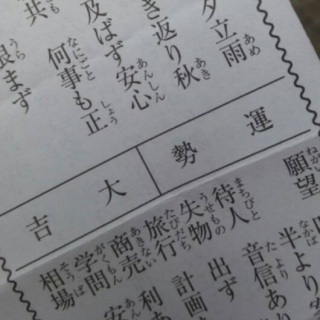 夕立雨
き返り秋
及ばず安心
何事も正
共
恨まず
運勢
大吉
願望
待人
音信あり
失物
出ず
旅行
計画
商売
利あ
学問
安
相場